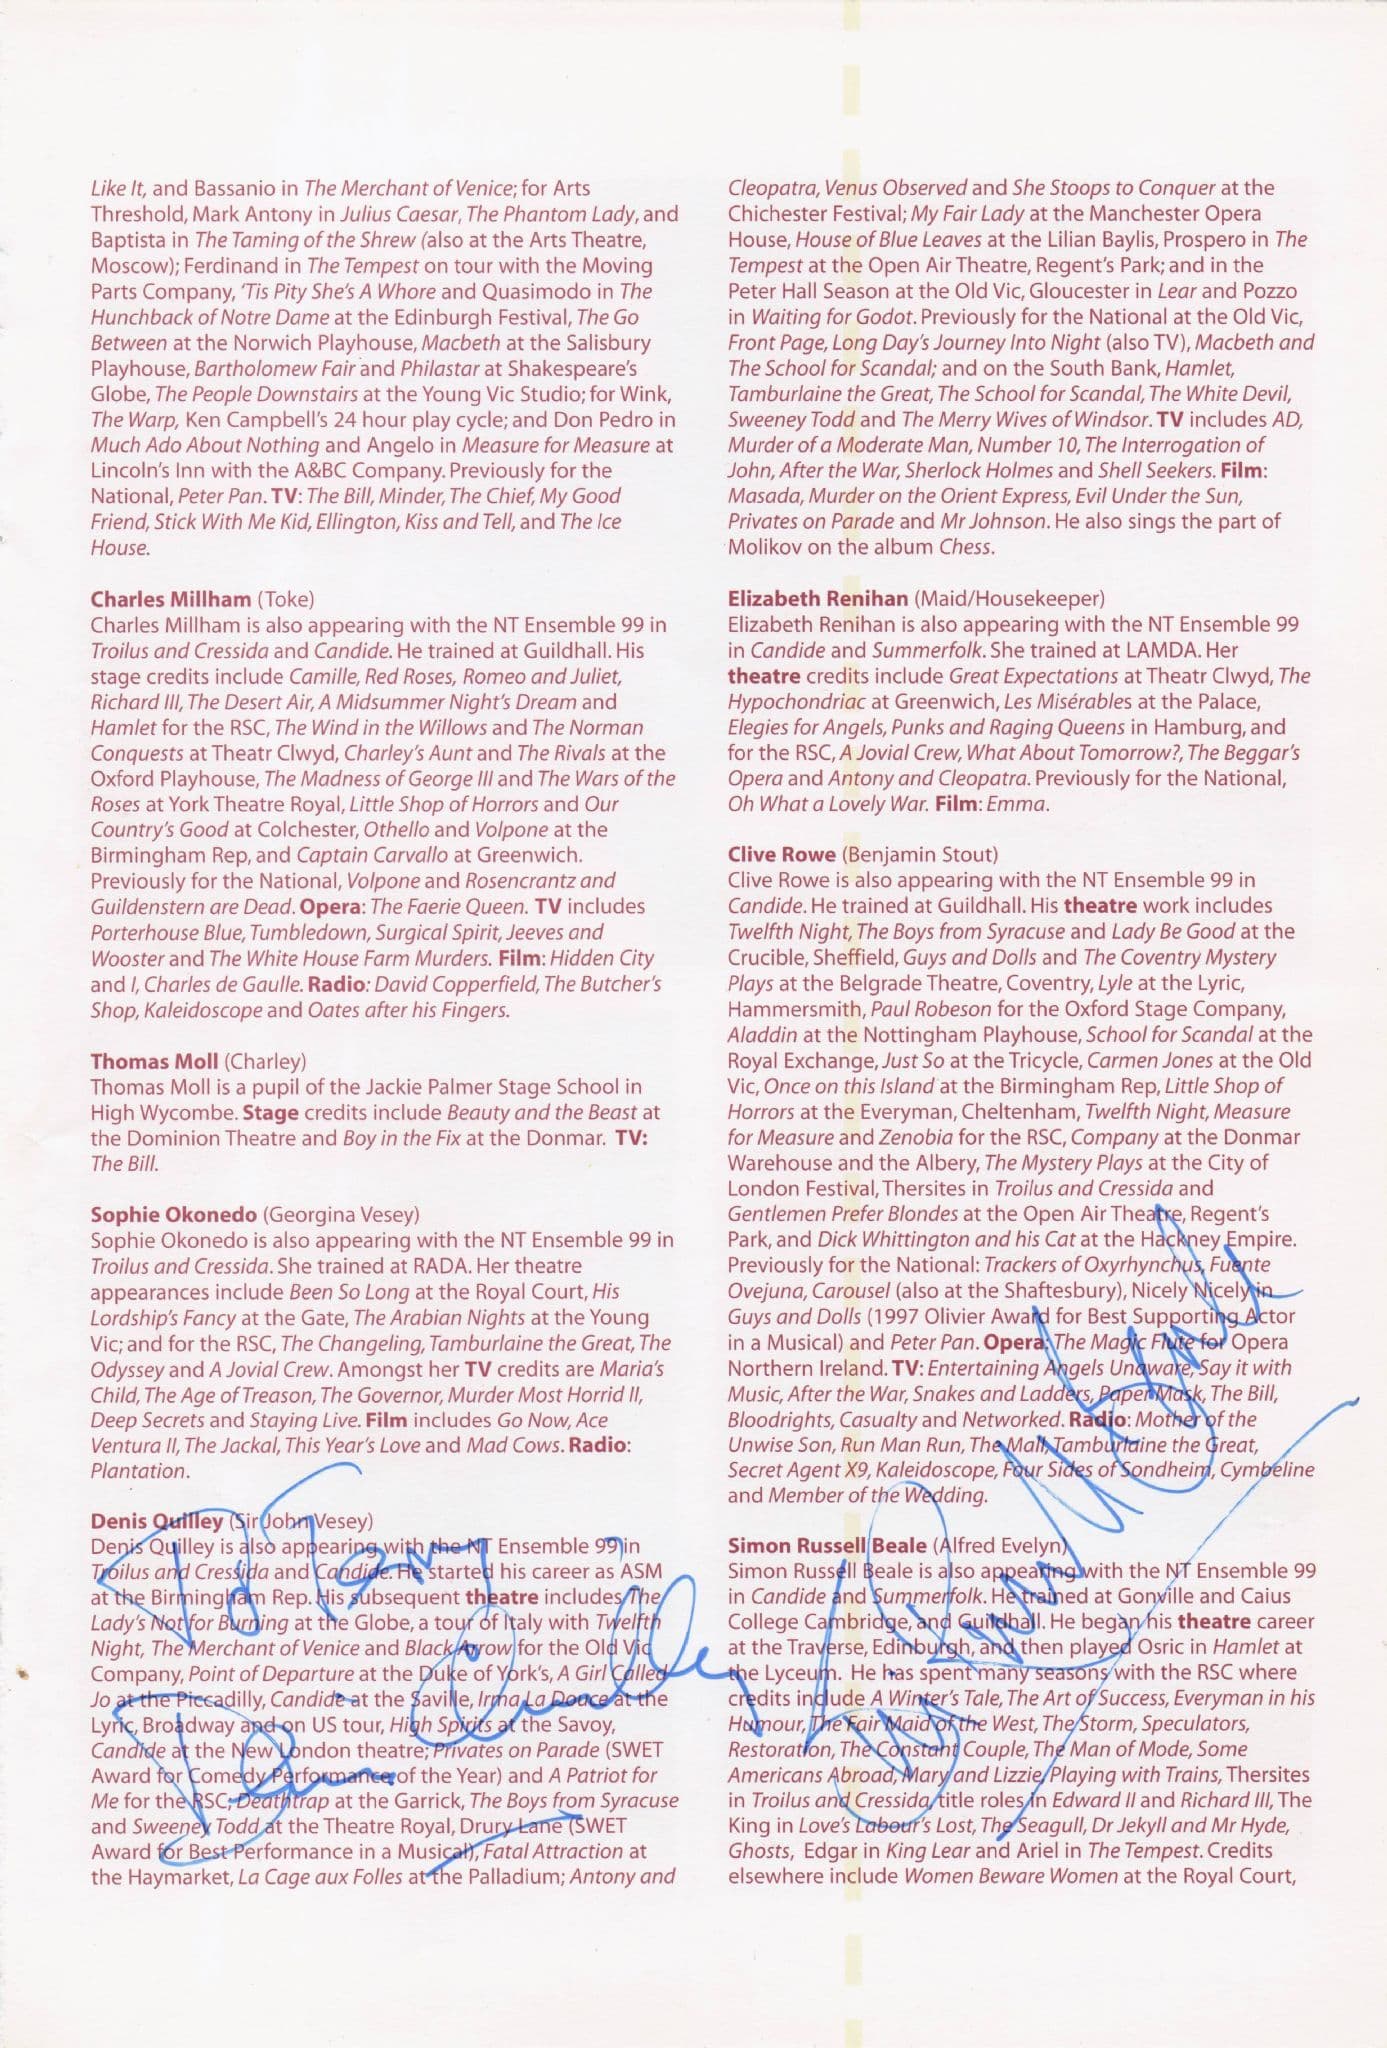 Like It, and Bassanio in The Merchant of Venice; for Arts
Threshold, Mark Antony in Julius Caesar, The Phantom Lady, and
Baptista in The Taming of the Shrew (also at the Arts Theatre,
Moscow); Ferdinand in The Tempest on tour with the Moving
Parts Company, ‘Tis Pity She's A Whore and Quasimodo in The
Hunchback of Notre Dame at the Edinburgh Festival, The Go
Between at the Norwich Playhouse, Macbeth at the Salisbury
Playhouse, Bartholomew Fair and Philastar at Shakespeare's
Globe, The People Downstairs at the Young Vic Studio; for Wink,
The Warp, Ken Campbell's 24 hour play cycle; and Don Pedro in
Much Ado About Nothing and Angelo in Measure for Measure at
Lincoln's Inn with the A&BC Company. Previously for the
National, Peter Pan. TV: The Bill, Minder, The Chief, My Good
Friend, Stick With Me Kid, Ellington, Kiss and Tell, and The Ice
House.
Charles Millham (Toke)
Charles Millham is also appearing with the NT Ensemble 99 in
Troilus and Cressida and Candide. He trained at Guildhall. His
stage credits include Camille, Red Roses, Romeo and Juliet,
Richard III, The Desert Air, A Midsummer Night's Dream and
Hamlet for the RSC, The Wind in the Willows and The Norman
Conquests at Theatr Clwyd, Charley's Aunt and The Rivals at the
Oxford Playhouse, The Madness of George III and The Wars of the
Roses at York Theatre Royal, Little Shop of Horrors and Our
Country's Good at Colchester, Othello and Volpone at the
Birmingham Rep, and Captain Carvallo at Greenwich.
Previously for the National, Volpone and Rosencrantz and
Guildenstern are Dead. Opera: The Faerie Queen. TV includes
Porterhouse Blue, Tumbledown, Surgical Spirit, Jeeves and
Wooster and The White House Farm Murders. Film: Hidden City
and I, Charles de Gaulle. Radio: David Copperfield, The Butcher's
Shop, Kaleidoscope and Oates after his Fingers.
Thomas Moll (Charley)
Thomas Moll is a pupil of the Jackie Palmer Stage School in
High Wycombe. Stage credits include Beauty and the Beast at
the Dominion Theatre and Boy in the Fix at the Donmar. TV:
The Bill.
Sophie Okonedo (Georgina Vesey)
Sophie Okonedo is also appearing with the NT Ensemble 99 in
Troilus and Cressida. She trained at RADA. Her theatre
appearances include Been So Long at the Royal Court, His
Lordship's Fancy at the Gate, The Arabian Nights at the Young
Vic; and for the RSC, The Changeling, Tamburlaine the Great, The
Odyssey and A Jovial Crew. Amongst her TV credits are Maria's
Child, The Age of Treason, The Governor, Murder Most Horrid II,
Deep Secrets and Staying Live. Film includes Go Now, Ace
Ventura II, The Jackal, This Year's Love and Mad Cows. Radio:
Plantation.
Denis Quilley (Sir John Vesey)
Denis Quilley is also appearing with the NT Ensemble 99 in
Troilus and Cressida and Candide. He started his career as ASM
at the Birmingham Rep. His subsequent theatre includes The
Lady's Not for Burning at the Globe, a tour of Italy with Twelfth
Night, The Merchant of Venice and Black Arrow for the Old Vic
Company, Point of Departure at the Duke of York's, A Girl Called
Jo at the Piccadilly, Candide at the Saville, Irma La Douce at the
Lyric, Broadway and on US tour, High Spirits at the Savoy,
Candide at the New London theatre; Privates on Parade (SWET
Award for Comedy Performance of the Year) and A Patriot for
Me for the RSC; Deathtrap at the Garrick, The Boys from Syracuse
and Sweeney Todd at the Theatre Royal, Drury Lane (SWET
Award for Best Performance in a Musical), Fatal Attraction at
the Haymarket, La Cage aux Folles at the Palladium; Antony and
To Tony
Denis Quilley
Cleopatra, Venus Observed and She Stoops to Conquer at the
Chichester Festival; My Fair Lady at the Manchester Opera
House, House of Blue Leaves at the Lilian Baylis, Prospero in The
Tempest at the Open Air Theatre, Regent's Park; and in the
Peter Hall Season at the Old Vic, Gloucester in Lear and Pozzo
in Waiting for Godot. Previously for the National at the Old Vic,
Front Page, Long Day's Journey Into Night (also TV), Macbeth and
The School for Scandal; and on the South Bank, Hamlet,
Tamburlaine the Great, The School for Scandal, The White Devil,
Sweeney Todd and The Merry Wives of Windsor. TV includes AD,
Murder of a Moderate Man, Number 10, The Interrogation of
John, After the War, Sherlock Holmes and Shell Seekers. Film:
Masada, Murder on the Orient Express, Evil Under the Sun,
Privates on Parade and Mr Johnson. He also sings the part of
Molikov on the album Chess.
Elizabeth Renihan (Maid/Housekeeper)
Elizabeth Renihan is also appearing with the NT Ensemble 99
in Candide and Summerfolk. She trained at LAMDA. Her
theatre credits include Great Expectations at Theatr Clwyd, The
Hypochondriac at Greenwich, Les Misérables at the Palace,
Elegies for Angels, Punks and Raging Queens in Hamburg, and
for the RSC, A Jovial Crew, What About Tomorrow?, The Beggar's
Opera and Antony and Cleopatra. Previously for the National,
Oh What a Lovely War. Film: Emma.
Clive Rowe (Benjamin Stout)
Clive Rowe is also appearing with the NT Ensemble 99 in
Candide. He trained at Guildhall. His theatre work includes
Twelfth Night, The Boys from Syracuse and Lady Be Good at the
Crucible, Sheffield, Guys and Dolls and The Coventry Mystery
Plays at the Belgrade Theatre, Coventry, Lyle at the Lyric,
Hammersmith, Paul Robeson for the Oxford Stage Company,
Aladdin at the Nottingham Playhouse, School for Scandal at the
Royal Exchange, Just So at the Tricycle, Carmen Jones at the Old
Vic, Once on this Island at the Birmingham Rep, Little Shop of
Horrors at the Everyman, Cheltenham, Twelfth Night, Measure
for Measure and Zenobia for the RSC, Company at the Donmar
Warehouse and the Albery, The Mystery Plays at the City of
London Festival, Thersites in Troilus and Cressida and
Gentlemen Prefer Blondes at the Open Air Theatre, Regent's
Park, and Dick Whittington and his Cat at the Hackney Empire.
Previously for the National: Trackers of Oxyrhynchus, Fuente
Ovejuna, Carousel (also at the Shaftesbury), Nicely Nicely in
Guys and Dolls (1997 Olivier Award for Best Supporting Actor
in a Musical) and Peter Pan. Opera: The Magic Flute for Opera
Northern Ireland. TV: Entertaining Angels Unaware, Say it with
Music, After the War, Snakes and Ladders, Paper Mask, The Bill,
Bloodrights, Casualty and Networked. Radio: Mother of the
Unwise Son, Run Man Run, The Mall, Tamburlaine the Great,
Secret Agent X9, Kaleidoscope, Four Sides of Sondheim, Cymbeline
and Member of the Wedding.
Simon Russell Beale (Alfred Evelyn)
Simon Russell Beale is also appearing with the NT Ensemble 99
in Candide and Summerfolk. He trained at Gonville and Caius
College Cambridge, and Guildhall. He began his theatre career
at the Traverse, Edinburgh, and then played Osric in Hamlet at
the Lyceum. He has spent many seasons with the RSC where
credits include A Winter's Tale, The Art of Success, Everyman in his
Humour, The Fair Maid of the West, The Storm, Speculators,
Restoration, The Constant Couple, The Man of Mode, Some
Americans Abroad, Mary and Lizzie, Playing with Trains, Thersites
in Troilus and Cressida, title roles in Edward II and Richard III, The
King in Love's Labour's Lost, The Seagull, Dr Jekyll and Mr Hyde,
Ghosts, Edgar in King Lear and Ariel in The Tempest. Credits
elsewhere include Women Beware Women at the Royal Court,